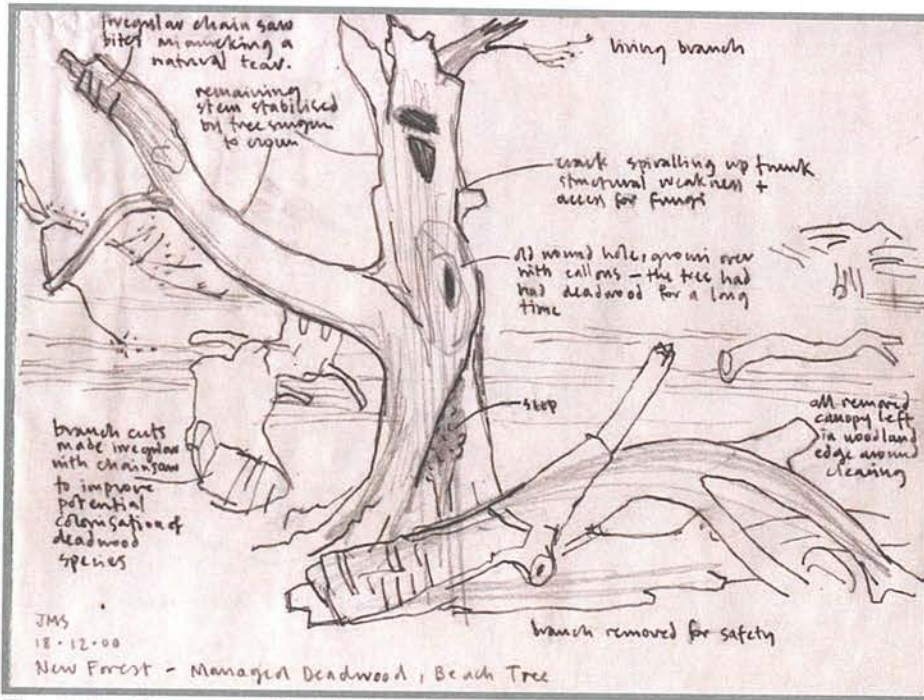 irregular chain saw
bites mimicking a
natural tear.
living branch
remaining
stem stabilised
by tree surgeon
to crown
crack spiralling up trunk
structural weakness +
access for fungi
old wound hole, grown over
with callons – the tree had
had deadwood for a long
time
SEEP
all removed
canopy left
in woodland
edge around
clearing
branch cuts
made irregular
with chainsaw
to improve
potential
colonisation of
deadwood
species
branch removed for safety
JMS
18·12·00
New Forest – Managed Deadwood, Beach Tree